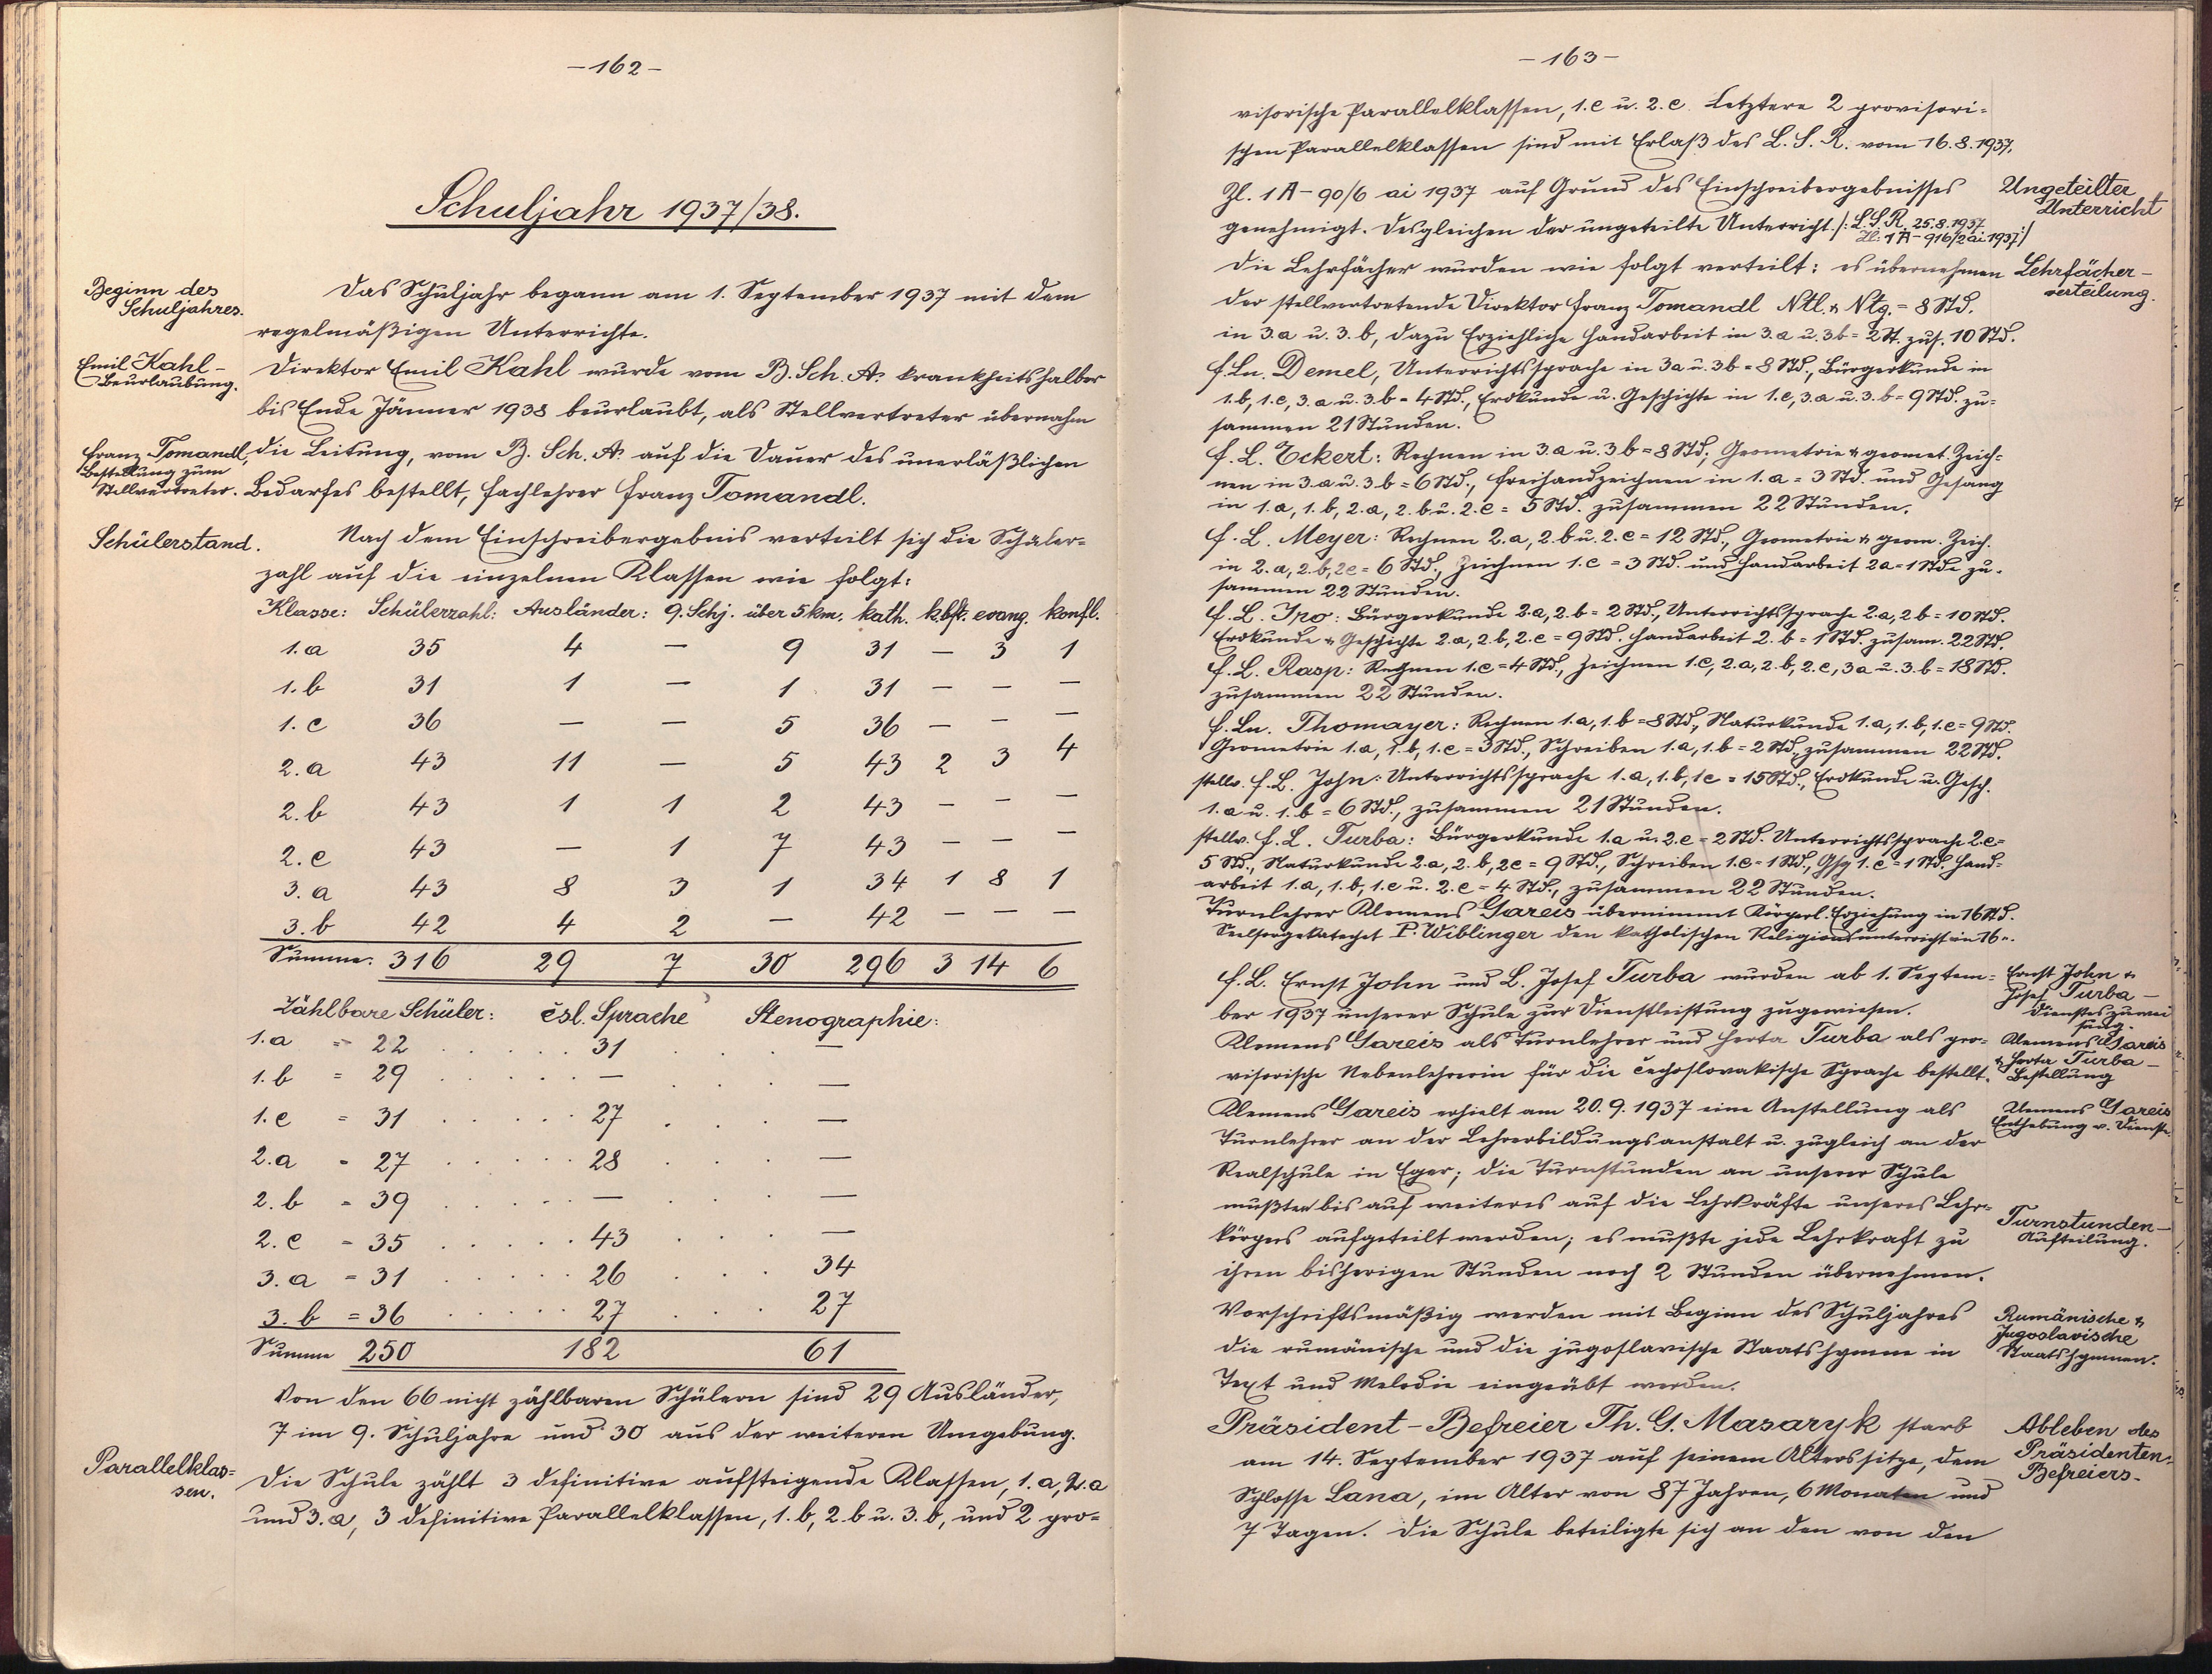 -162-
Schuljahr 1937/38.
Beginn des
Schuljahres.
Das Schuljahr begann am 1. September 1937 mit dem
regelmäßigen Unterrichte.
Emil Kahl -
Beurlaubung.
Direktor Emil Kahl wurde vom B. Sch. A. krankheitshalber
bis Ende Jänner 1938 beurlaubt, als Stellvertreter übernahm
Franz Tomandl,
Bestellung zum
Stellvertreter.
die Leitung, vom B. Sch. A. auf die Dauer des unerläßlichen
Bedarfes bestellt, Fachlehrer Franz Tomandl.
Schülerstand.
Nach dem Einschreibergebnis verteilt sich die Schüler=
zahl auf die einzelnen Klassen wie folgt:
Klasse: Schülerzahl: Ausländer: 9. Schj. über 5 km. kath. evang. konfl.
1. a 35 4 — 9 31 — 3 1
1. b 31 1 — 1 31 — — —
1. c 36 — — 5 36 — — —
2. a 43 11 — 5 43 2 3 4
2. b 43 1 1 2 43 — — —
2. c 43 — 1 7 43 — — —
3. a 43 8 3 1 34 1 8 1
3. b 42 4 2 — 42 — — —
Summe: 316 29 7 30 296 3 14 6
Zählbare Schüler: čsl. Sprache Stenographie:
1. a = 22 . . . . . 31 . . . —
1. b = 29 . . . . . — . . . —
1. c = 31 . . . . . 27 . . . —
2. a = 27 . . . . . 28 . . . —
2. b = 39 . . . . . — . . . —
2. c = 35 . . . . . 43 . . . —
3. a = 31 . . . . . 26 . . . 34
3. b = 36 . . . . . 27 . . . 27
Summe 250 182 61
Von den 66 nicht zählbaren Schülern sind 29 Ausländer,
7 im 9. Schuljahre und 30 aus der weiteren Umgebung.
Parallelklas=
sen.
Die Schule zählt 3 definitive aufsteigende Klassen, 1. a, 2. a
und 3. a, 3 definitive Parallelklassen, 1. b, 2. b u. 3. b, und 2 pro=
-163-
visorische Parallelklassen, 1. c u. 2. c. Letztere 2 provisori=
schen Parallelklassen sind mit Erlaß des L. S. R. vom 16. 8. 1937,
Zl. 1 A - 90/6 ai 1937 auf Grund des Einschreibergebnisses
Ungeteilter
Unterricht
genehmigt. Desgleichen der ungeteilte Unterricht. /: L. S. R. 25. 8. 1937
Zl: 1 A - 916/2 ai 1937 :/
Die Lehrfächer wurden wie folgt verteilt: es übernehmen
Lehrfächer-
verteilung.
der stellvertretende Direktor Franz Tomandl Ntl. & Ntg. = 8 Std.
in 3. a u. 3. b, dazu Erziehliche Handarbeit in 3. a u. 3 b = 2 St. zus. 10 Std.
F. Ln. Demel, Unterrichtssprache in 3a u. 3b = 8 Std., Bürgerkunde in
1. b, 1. c, 3. a u. 3. b = 4 Std., Erdkunde u. Geschichte in 1. c, 3. a u. 3. b = 9 Std. zu=
sammen 21 Stunden.
F. L. Eckert: Rechnen in 3. a u. 3 b = 8 Std., Geometrie & geomet. Zeich=
nen in 3. a u. 3. b = 6 Std., Freihandzeichnen in 1. a = 3 Std. und Gesang
in 1. a, 1. b, 2. a, 2. b u. 2. c = 5 Std. zusammen 22 Stunden.
F. L. Meyer: Rechnen 2. a, 2. b u. 2. c = 12 Std., Geometrie & geom. Zeich.
in 2. a, 2. b, 2c = 6 Std., Zeichnen 1. c = 3 Std. und Handarbeit 2a = 1 Stde zu=
sammen 22 Stunden.
F. L. Iro: Bürgerkunde 2. a, 2. b = 2 Std., Unterrichtssprache 2. a, 2 b = 10 Std.
Erdkunde & Geschichte 2. a, 2. b, 2. c = 9 Std. Handarbeit 2. b = 1 Std. zusam. 22 Std.
F. L. Rasp: Rechnen 1. c = 4 Std., Zeichnen 1. c, 2. a, 2. b, 2. c, 3a u. 3. b = 18 Std.
zusammen 22 Stunden.
F. Ln. Thomayer: Rechnen 1. a, 1. b = 8 Std., Naturkunde 1. a, 1. b, 1. c = 9 Std.
Geometrie 1. a, 1. b, 1. c = 3 Std., Schreiben 1. a, 1. b = 2 Std., zusammen 22 Std.
stellv. F. L. John: Unterrichtssprache 1. a, 1. b, 1c = 15 Std., Erdkunde u. Gesch.
1. a u. 1. b = 6 Std., zusammen 21 Stunden.
stellv. F. L. Turba: Bürgerkunde 1. a u. 2. c = 2 Std. Unterrichtssprache 2. c =
5 Std., Naturkunde 2. a, 2. b, 2c = 9 Std., Schreiben 1. c = 1 Std., Gsg 1. c = 1 Std. Hand=
arbeit 1. a, 1. b, 1. c u. 2. c = 4 Std., zusammen 22 Stunden.
Turnlehrer Klemens Gareis übernimmt Körperl. Erziehung in 16 Std.
Seelsorgekatechet P. Wiblinger den katholischen Religionsunterricht in 16 ".
F. L. Ernst John und L. Josef Turba wurden ab 1. Septem=
ber 1937 unserer Schule zur Dienstleistung zugewiesen.
Ernst John &
Josef Turba -
Dienstzuwei
sung.
Klemens Gareis als Turnlehrer und Herta Turba als pro=
visorische Nebenlehrerin für die čechoslovakische Sprache bestellt.
Klemens Gareis
& Herta Turba -
Bestellung
Klemens Gareis erhielt am 20. 9. 1937 eine Anstellung als
Turnlehrer an der Lehrerbildungsanstalt u. zugleich an der
Klemens Gareis
Enthebung v. Dienste
Realschule in Eger; die Turnstunden an unserer Schule
mußten bis auf weiteres auf die Lehrkräfte unseres Lehr=
körpers aufgeteilt werden; es mußte jede Lehrkraft zu
Turnstunden-
Aufteilung.
ihren bisherigen Stunden noch 2 Stunden übernehmen.
Vorschriftsmäßig werden mit Beginn des Schuljahres
die rumänische und die jugoslavische Staatshymne in
Text und Melodie eingeübt werden.
Rumänische &
Jugoslavische
Staatshymnen.
Präsident-Befreier Th. G. Masaryk starb
am 14. September 1937 auf seinem Alterssitze, dem
Schlosse Lana, im Alter von 87 Jahren, 6 Monaten und
7 Tagen. Die Schule beteiligte sich an den von den
Ableben des
Präsidenten-
Befreiers-